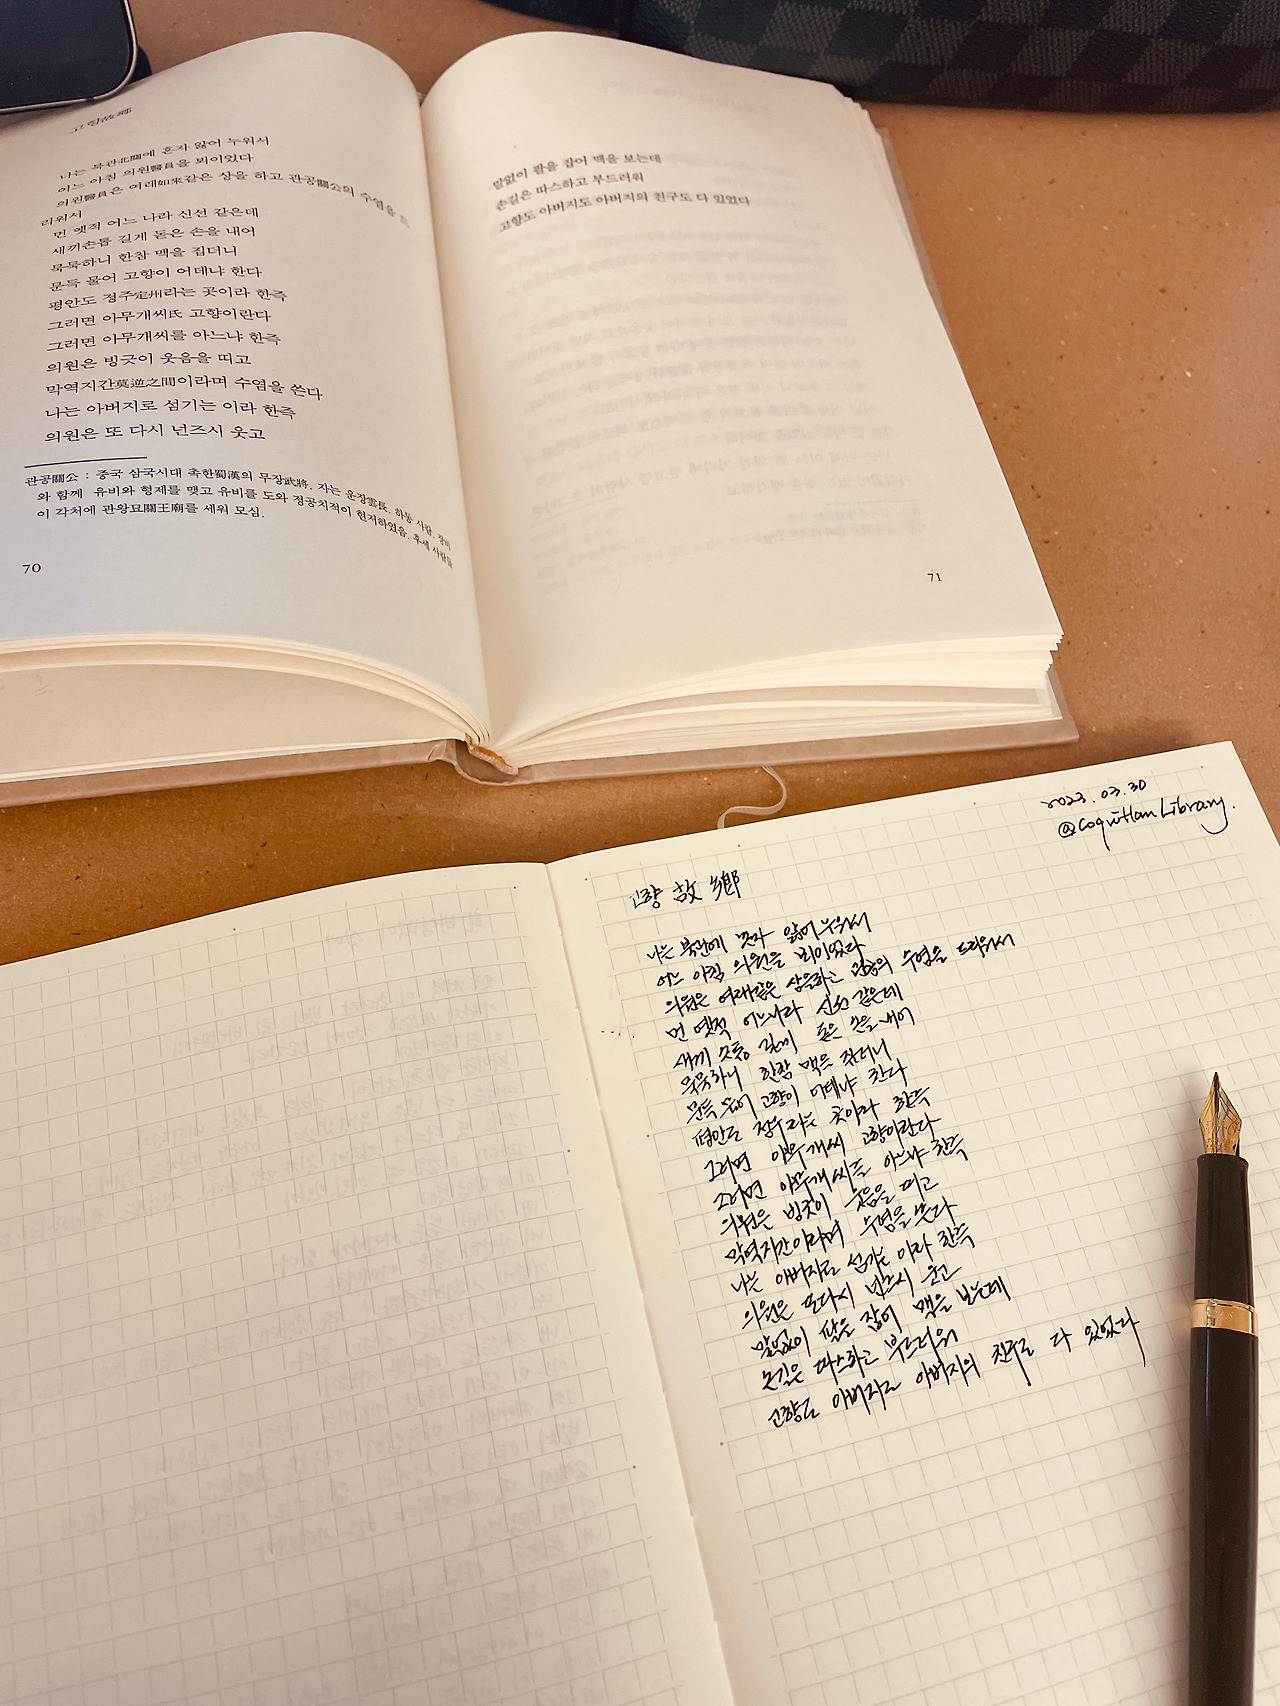 고향故鄕
나는 북관北關에 혼자 앓어 누워서
어느 아침 의원醫員을 뵈이었다
의원醫員은 여래如來같은 상을 하고 관공關公의 수염을 드
리워서
먼 옛적 어느 나라 신선 같은데
새끼손톱 길게 돋은 손을 내어
묵묵하니 한참 맥을 집더니
문득 물어 고향이 어데냐 한다
평안도 정주定州라는 곳이라 한즉
그러면 아무개씨氏 고향이란다
그러면 아무개씨를 아느냐 한즉
의원은 빙긋이 웃음을 띠고
막역지간莫逆之間이라며 수염을 쓴다
나는 아버지로 섬기는 이라 한즉
의원은 또 다시 넌즈시 웃고
관공關公 : 중국 삼국시대 촉한蜀漢의 무장武將. 자는 운장雲長. 하동 사람. 장비
와 함께 유비와 형제를 맺고 유비를 도와 정공치적이 현저하였음. 후세 사람들
이 각처에 관왕묘關王廟를 세워 모심.
70
말없이 팔을 잡어 맥을 보는데
손길은 따스하고 부드러워
고향도 아버지도 아버지의 친구도 다 있었다
71
2023.03.30
@Coquitlam Library.
고향 故鄕
나는 북관에 혼자 앓어 누워서
어느 아침 의원을 뵈이었다
의원은 여래같은 상을하고 관공의 수염을 드리워서
먼 옛적 어느나라 신선 같은데
새끼 손톱 길게 돋은 손을 내어
묵묵하니 한참 맥을 집더니
문득 물어 고향이 어데냐 한다
평안도 정주라는 곳이라 한즉
그러면 아무개씨 고향이란다
그러면 아무개씨를 아느냐 한즉
의원은 빙긋이 웃음을 띠고
막역지간이라며 수염을 쓴다
나는 아버지로 섬기는 이라 한즉
의원은 또다시 넌즈시 웃고
말없이 팔을 잡어 맥을 보는데
손길은 따스하고 부드러워
고향도 아버지도 아버지의 친구도 다 있었다